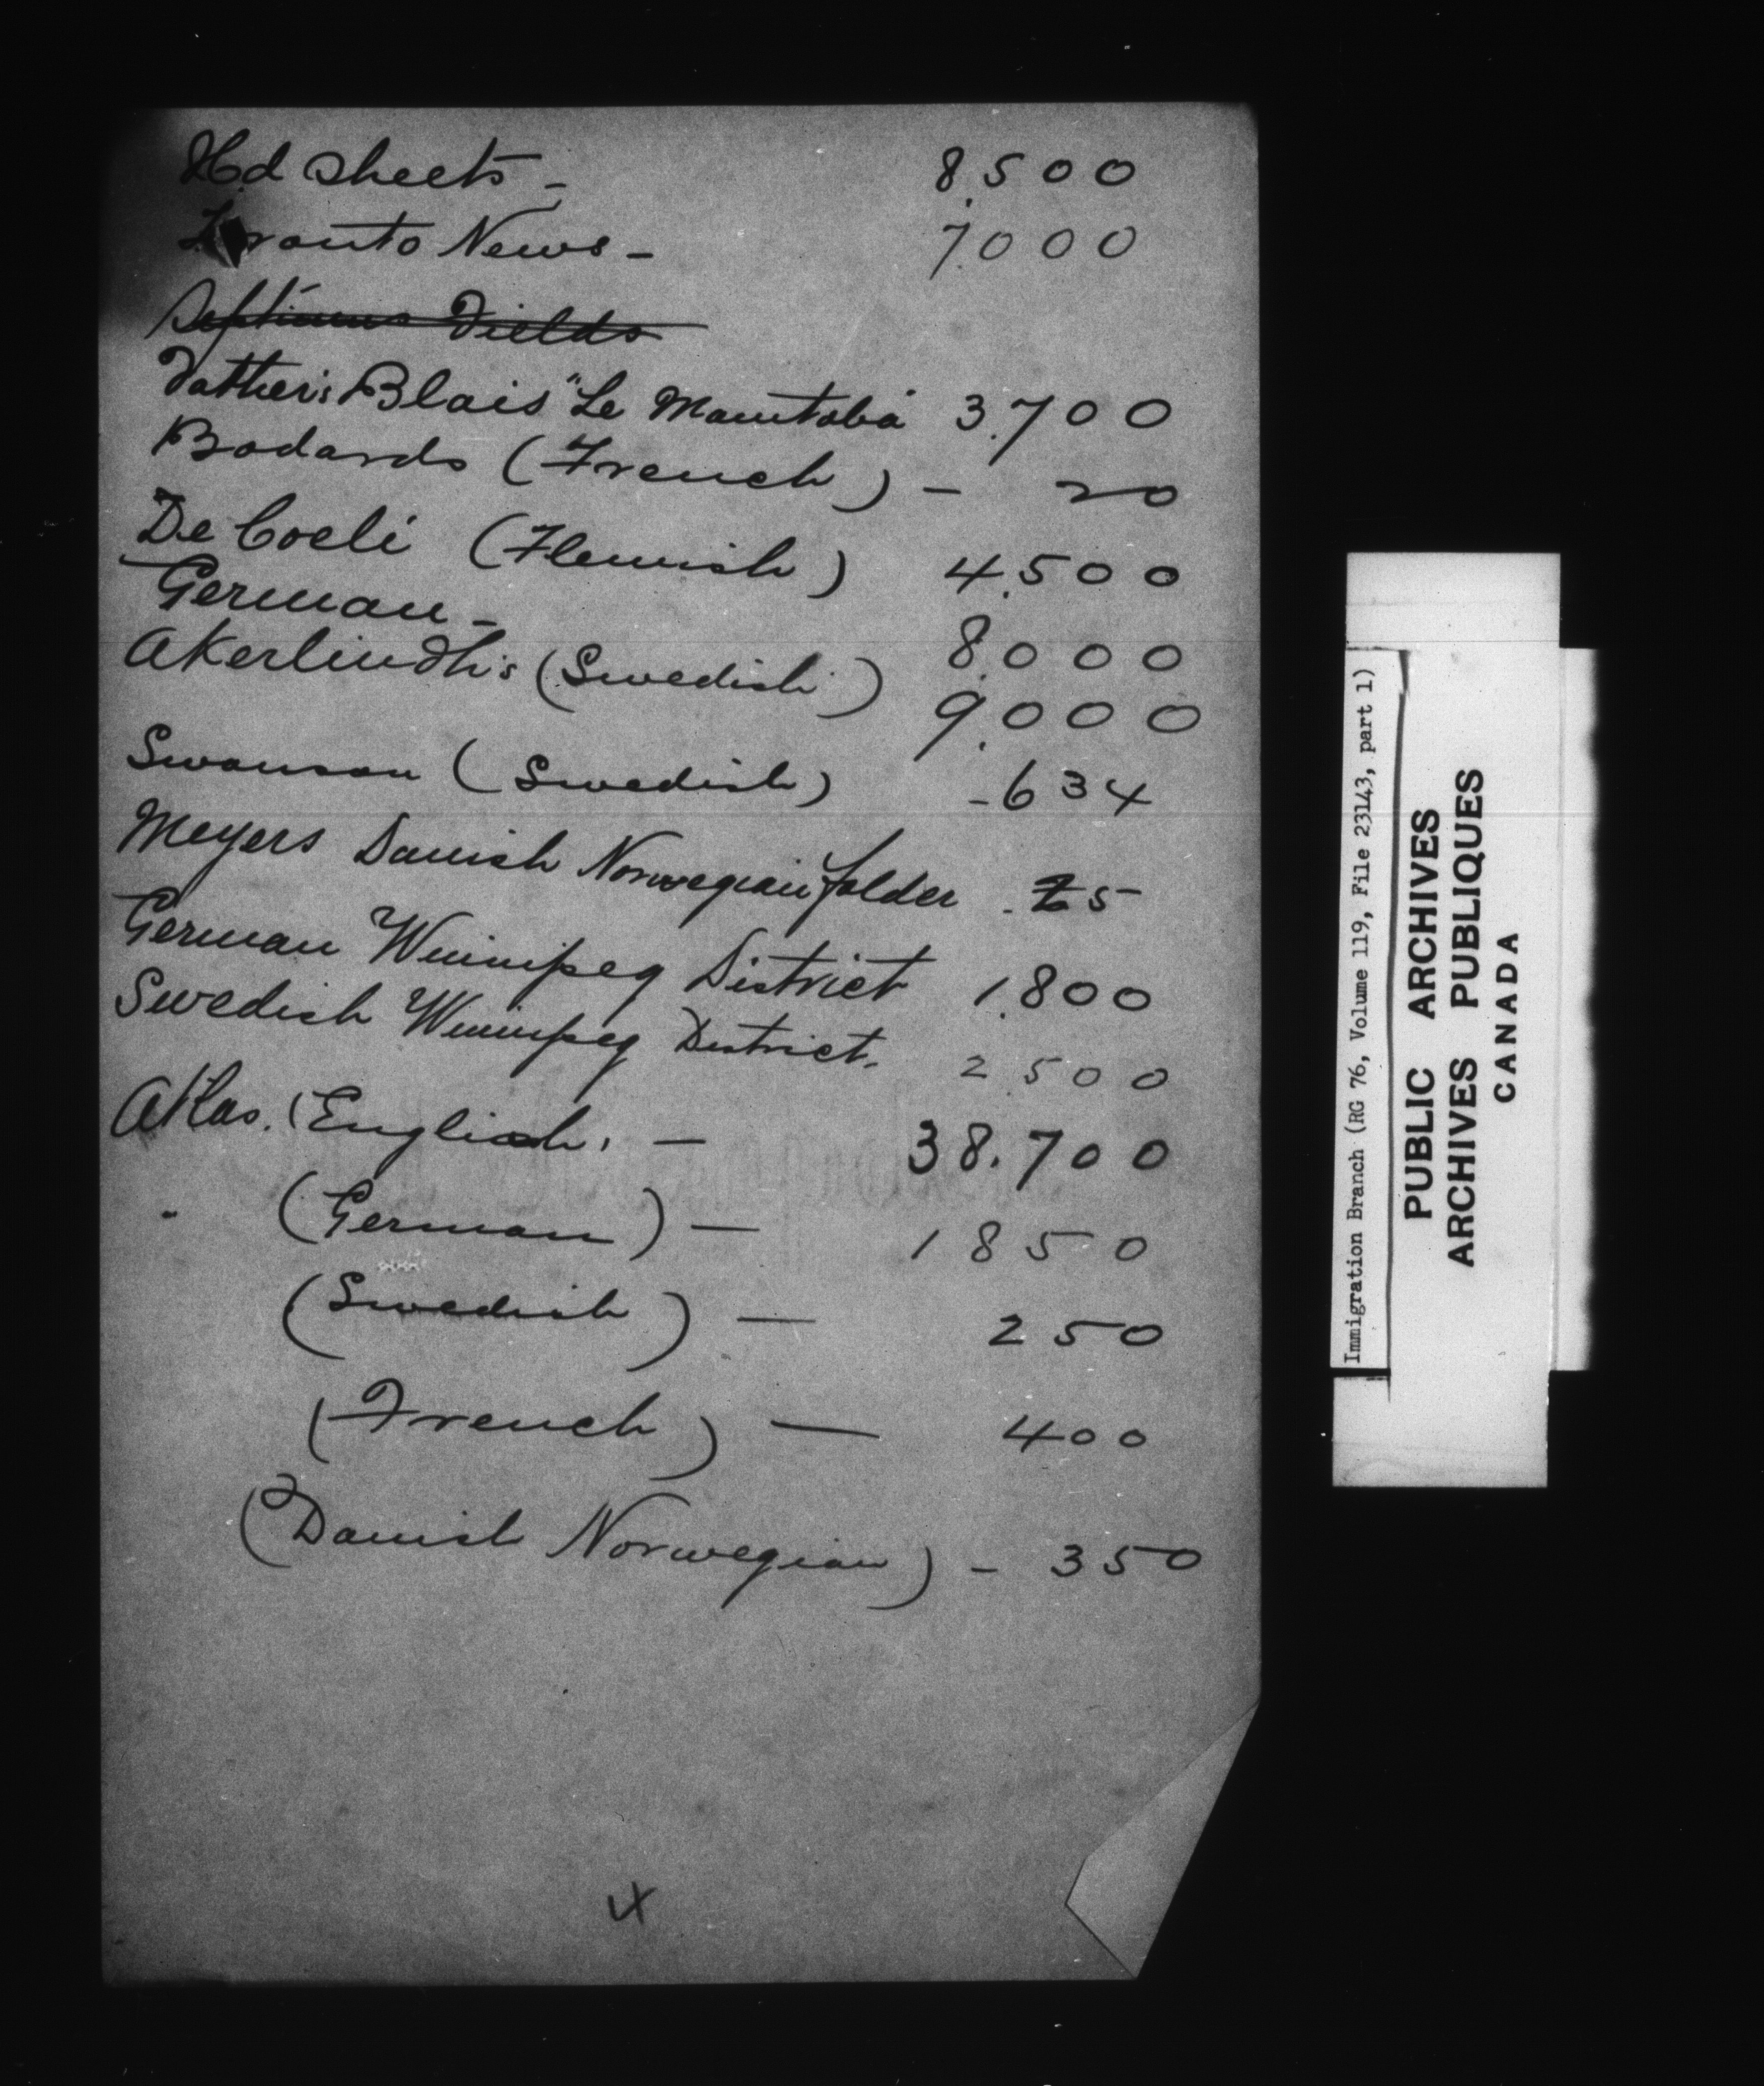 Hd sheets - 8.500
Toronto News - 7.000
Septimus Fields
Father's Blais "Le Manitoba 3.700
Bodards (French) - 20
De Coeli (Flemish) 4.500
German - 8.000
Akerlindh's (Swedish) 9.000
Swanson (Swedish) - 634
Meyers Danish Norwegian folder - 25
German Winnipeg District 1.800
Swedish Winnipeg District. 2.500
Atlas. (English. - 38.700
" (German) - 1850
(Swedish) - 250
(French) - 400
(Danish Norwegian) - 350
Immigration Branch (RG 76, Volume 119, File 23143, part 1)
PUBLIC ARCHIVES
ARCHIVES PUBLIQUES
CANADA